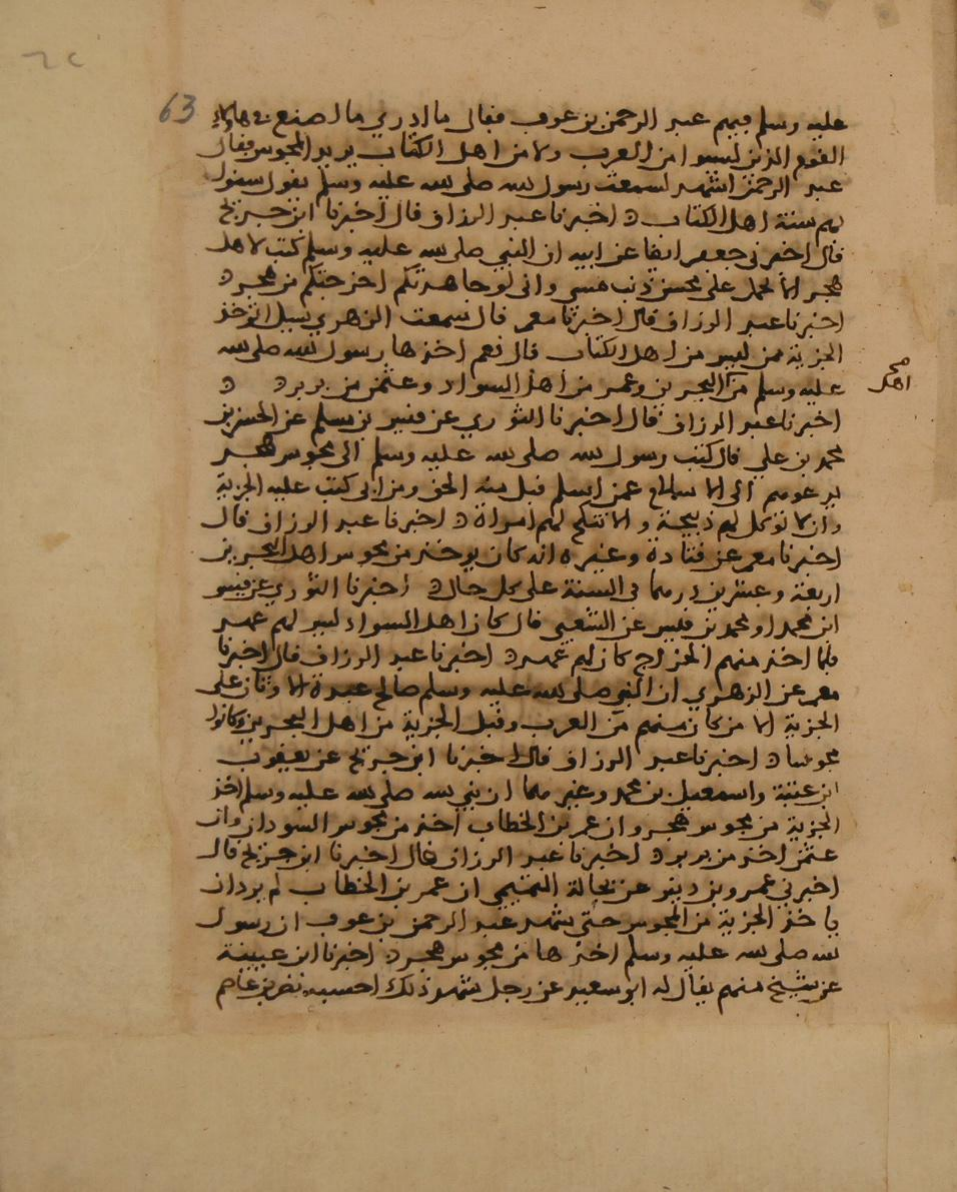 63
عليه وسلم فيهم عبد الرحمن بن عوف فقال ما ادري ما اصنع في هاولاء
القوم الذين ليسوا من العرب ولا من اهل الكتاب يريد المجوس فقال
عبد الرحمن اشهد لسمعت رسول الله صلى الله عليه وسلم يقول سنوا
بهم سنة اهل الكتاب ٥ اخبرنا عبد الرزاق قال اخبرنا ابن جريج
قال اخبرني جعفر ايضا عن ابيه ان النبي صلى الله عليه وسلم كتب لاهل
هجر الا يحمل على محسن ذنب مسي واني لو جاهدتكم اخرجتكم من هجر ٥
اخبرنا عبد الرزاق قال اخبرنا معمر قال سمعت الزهري سيل اتوخذ
الجزية ممن ليس من اهل الكتاب قال نعم اخذها رسول الله صلى الله
عليه وسلم من البحرين وعمر من اهل السواد وعثمن من بربر ٥ ٥
صح
اهل
اخبرنا عبد الرزاق قال اخبرنا الثوري عن قيس بن مسلم عن الحسن بن
محمد بن علي قال كتب رسول الله صلى الله عليه وسلم الى مجوس هجر
يدعوهم الى الاسلام فمن اسلم قبل منه الحق ومن ابى كتب عليه الجزية
وان لا توكل لهم ذبيحة ولا تنكح لهم امراة ٥ اخبرنا عبد الرزاق قال
اخبرنا معمر عن قتادة وغيره انه كان يوخذ من مجوس اهل البحرين
اربعة وعشرين درهما في السنة على كل حال ٥ اخبرنا الثوري عن قيس
ابن محمد او محمد بن قيس عن الشعبي قال كان اهل السواد ليس لهم عهد
فلما اخذ منهم الخراج كان لهم عهد ٥ اخبرنا عبد الرزاق قال اخبرنا
معمر عن الزهري ان النبي صلى الله عليه وسلم صالح عبدة الاوثان على
الجزية الا من كان منهم من العرب وقبل الجزية من اهل البحرين وكانوا
مجوسا ٥ اخبرنا عبد الرزاق قال اخبرنا ابن جريج عن يعقوب
ابن عتبة واسمعيل بن محمد وغيرهما ان نبي الله صلى الله عليه وسلم اخذ
الجزية من مجوس هجر وان عمر بن الخطاب اخذ من مجوس السودان وان
عثمن اخذ من بربر ٥ اخبرنا عبد الرزاق قال اخبرنا ابن جريج قال
اخبرني عمرو بن دينر عن بجالة التميمي ان عمر بن الخطاب لم يرد ان
ياخذ الجزية من المجوس حتى شهد عبد الرحمن بن عوف ان رسول
الله صلى الله عليه وسلم اخذها من مجوس هجر ٥ اخبرنا ابن عيينة
عن شيخ منهم يقال له ابو سعيد عن رجل شهد ذلك احسبه نصر بن عاصم